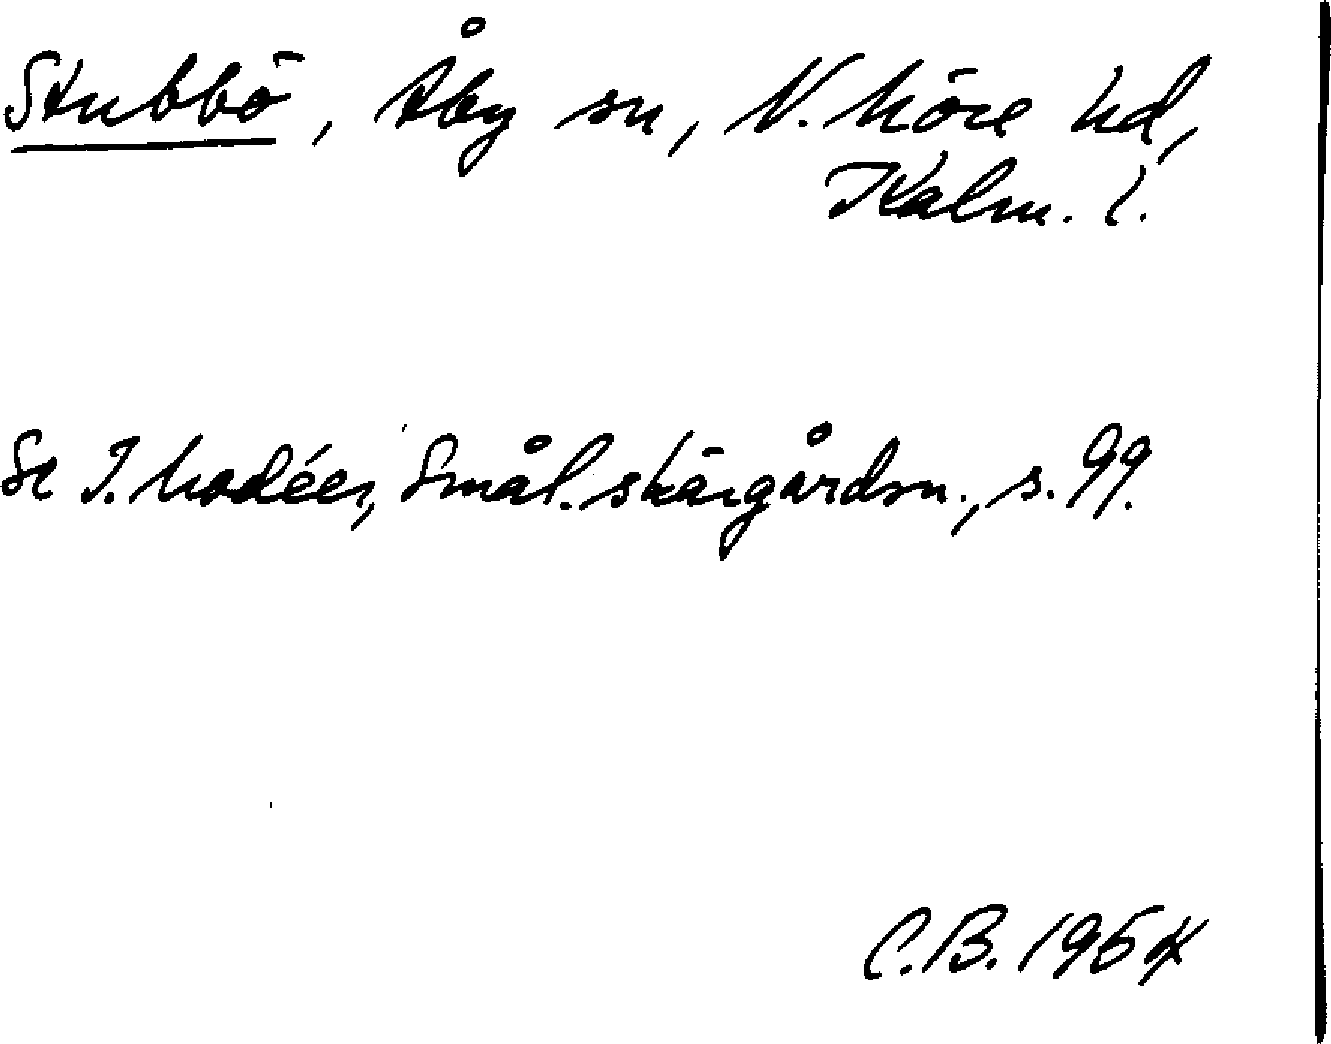 Stubbö, Åby sn, N. Möre hd,
Kalm. l.
Se I. Modéer, Smål. skärgårdsn., s. 99.
C.B. 1954